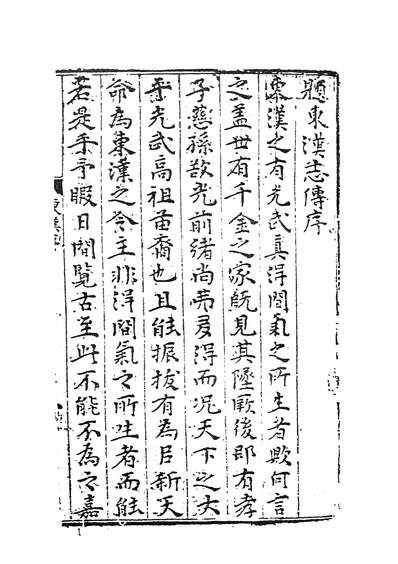 題東漢志傳序
東漢之有光武真得間氣之所生者歟何言
之盖世有千金之家既見其墜厥後即有孝
子慈孫欲光前緒尚弗多得而况天下之大
乎光武高祖苗裔也且能振拔有為以新天
命為東漢之令主非得間氣之所生者而能
若是乎予暇日閒覧古至此不能不為之嘉